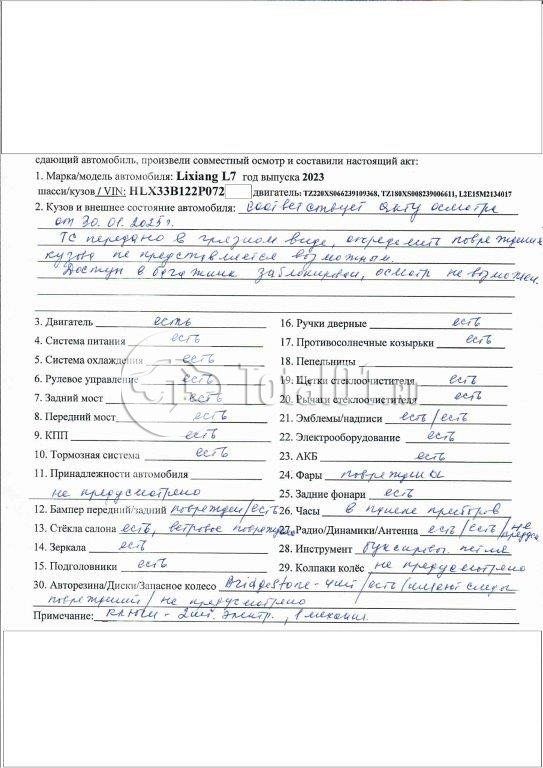 сдающий автомобиль, произвели совместный осмотр и составили настоящий акт:
1. Марка/модель автомобиля: Lixiang L7 год выпуска 2023
шасси/кузов / VIN: HLX33B122P072 двигатель: TZ220XS066239109368, TZ180XS008239006611, L2E15M2134017
2. Кузов и внешнее состояние автомобиля: соответствует акту осмотра
от 30.01.2025г.
ТС передано в грязном виде, определить повреждения
кузова не представляется возможным.
Доступ в багажник заблокирован, осмотр не возможен.
3. Двигатель есть
4. Система питания есть
5. Система охлаждения есть
6. Рулевое управление есть
7. Задний мост есть
8. Передний мост есть
9. КПП есть
10. Тормозная система есть
11. Принадлежности автомобиля
не предусмотрено
12. Бампер передний/задний поврежден/есть
13. Стёкла салона есть, ветровое повреждено
14. Зеркала есть
15. Подголовники есть
16. Ручки дверные есть
17. Противосолнечные козырьки есть
18. Пепельницы
19. Щетки стеклоочистителя есть
20. Рычаги стеклоочистителя есть
21. Эмблемы/надписи есть/есть
22. Электрооборудование есть
23. АКБ есть
24. Фары повреждены
25. Задние фонари есть
26. Часы в панели приборов
27. Радио/Динамики/Антенна есть/есть/не
28. Инструмент буксировоч. петля
29. Колпаки колёс не предусмотрено
30. Авторезина/Диски/Запасное колесо Bridgestone - 4шт/есть/имеют следы
повреждений/не предусмотрено
Примечание: ключи - 2шт. электр., 1 механич.
Total01.ru